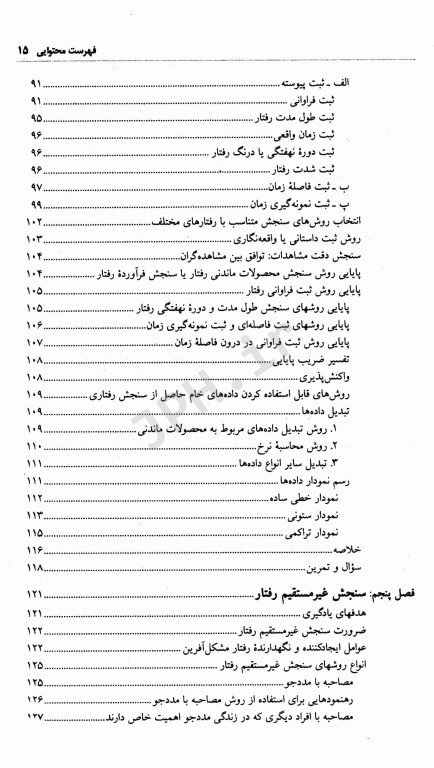 فهرست محتوایی ۱۵
الف ـ ثبت پیوسته ........ ۹۱
ثبت فراوانی ........ ۹۱
ثبت طول مدت رفتار ........ ۹۵
ثبت زمان واقعی ........ ۹۶
ثبت دورهٔ نهفتگی یا درنگ رفتار ........ ۹۶
ثبت شدت رفتار ........ ۹۶
ب ـ ثبت فاصلهٔ زمان ........ ۹۷
پ ـ ثبت نمونه‌گیری زمان ........ ۹۹
انتخاب روش‌های سنجش متناسب با رفتارهای مختلف ........ ۱۰۲
روش ثبت داستانی یا واقعه‌نگاری ........ ۱۰۳
سنجش دقت مشاهدات: توافق بین مشاهده‌گران ........ ۱۰۴
پایایی روش سنجش محصولات ماندنی رفتار یا سنجش فرآوردهٔ رفتار ........ ۱۰۴
پایایی روش ثبت فراوانی رفتار ........ ۱۰۵
پایایی روشهای سنجش طول مدت و دورهٔ نهفتگی رفتار ........ ۱۰۵
پایایی روشهای ثبت فاصله‌ای و ثبت نمونه‌گیری زمان ........ ۱۰۶
پایایی روش ثبت فراوانی در درون فاصلهٔ زمان ........ ۱۰۷
تفسیر ضریب پایایی ........ ۱۰۸
واکنش‌پذیری ........ ۱۰۸
روش‌های قابل استفاده کردن داده‌های خام حاصل از سنجش رفتاری ........ ۱۰۹
تبدیل داده‌ها ........ ۱۰۹
۱. روش تبدیل داده‌های مربوط به محصولات ماندنی ........ ۱۰۹
۲. روش محاسبهٔ نرخ ........ ۱۱۰
۳. تبدیل سایر انواع داده‌ها ........ ۱۱۱
رسم نمودار داده‌ها ........ ۱۱۱
نمودار خطی ساده ........ ۱۱۲
نمودار ستونی ........ ۱۱۳
نمودار تراکمی ........ ۱۱۵
خلاصه ........ ۱۱۶
سؤال و تمرین ........ ۱۱۸
فصل پنجم: سنجش غیرمستقیم رفتار ........ ۱۲۱
هدفهای یادگیری ........ ۱۲۱
ضرورت سنجش غیرمستقیم رفتار ........ ۱۲۲
عوامل ایجادکننده و نگهدارندهٔ رفتار مشکل‌آفرین ........ ۱۲۲
انواع روشهای سنجش غیرمستقیم رفتار ........ ۱۲۵
مصاحبه با مددجو ........ ۱۲۵
رهنمودهایی برای استفاده از روش مصاحبه با مددجو ........ ۱۲۶
مصاحبه با افراد دیگری که در زندگی مددجو اهمیت خاص دارند ........ ۱۲۷